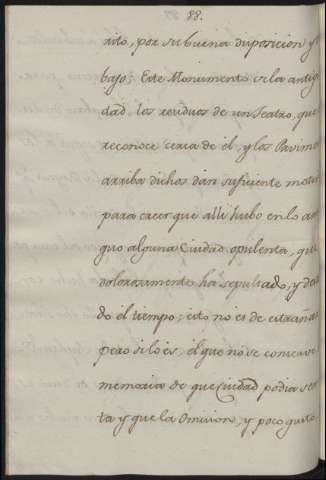 88.
rito, por su buena disposicion y
bajo; Este Monumento es la antig
dad, los residuos de un Teatro, que
reconoce cerca de èl, y los Pavime
arriba dichos dan suficiente motiv
para creer que alli hubo en lo an
guo alguna Ciudad opulenta, que
dolorosamente ha sepultado, y
do el tiempo; esto no es de estrañar
pero si lo es, el que no se conserve
memoria de que Ciudad podia ser
ta y que la Omision, y poco gusto